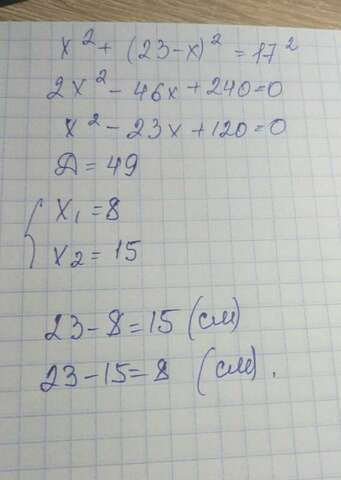 x² + (23-x)² = 17²
2x² - 46x + 240=0
x² - 23x + 120=0
Д = 49
{ x₁ = 8
x₂ = 15
23 - 8 = 15 (см)
23 - 15 = 8 (см).